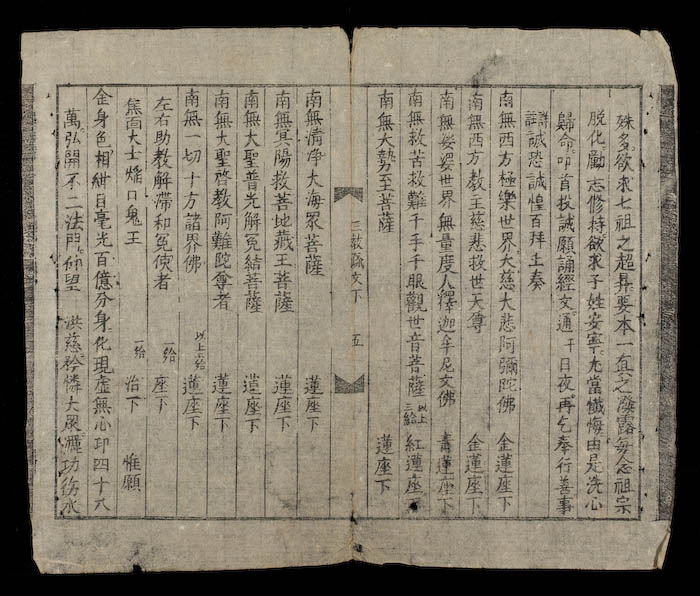 殊多欲求七祖之超昇要本一真之發露每念祖宗
脫化勵志修持欲求子姓安寧尤當懺悔由是洗心
歸命叩首投誠願誦經文通干日夜再乞奉行善事
謹誠恐誠惶百拜上奏
南無西方極樂世界大慈大悲阿彌陀佛 金蓮座下
南無西方教主慈悲救世天尊 金蓮座下
南無娑婆世界無量度人釋迦牟尼文佛 青蓮座下
南無救苦救難千手千眼觀世音菩薩 以上三給 紅蓮座下
南無大勢至菩薩 蓮座下
三教疏文下 五
南無清淨大海眾菩薩 蓮座下
南無冥陽救苦地藏王菩薩 蓮座下
南無大聖普先解冤結菩薩 蓮座下
南無大聖啓教阿難陀尊者 蓮座下
南無一切十方諸界佛 以上六給 蓮座下
左右助教解滯和冤使者 一給 座下
焦面大士焰口鬼王 一給 治下 惟願
金身色相紺目毫光百億分身化現虛無心印四十八
萬弘開不二法門仰望 洪慈矜憐大眾灑功德水